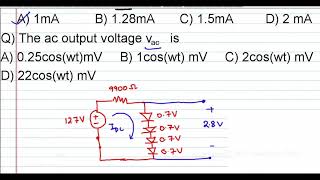 A) 1mA B) 1.28mA C) 1.5mA D) 2 mA
Q) The ac output voltage vac is
A) 0.25cos(wt) mV B) 1cos(wt) mV C) 2cos(wt) mV
D) 22cos(wt) mV
9900Ω
12.7V
IDC
0.7V
0.7V
0.7V
0.7V
+
2.8V
-